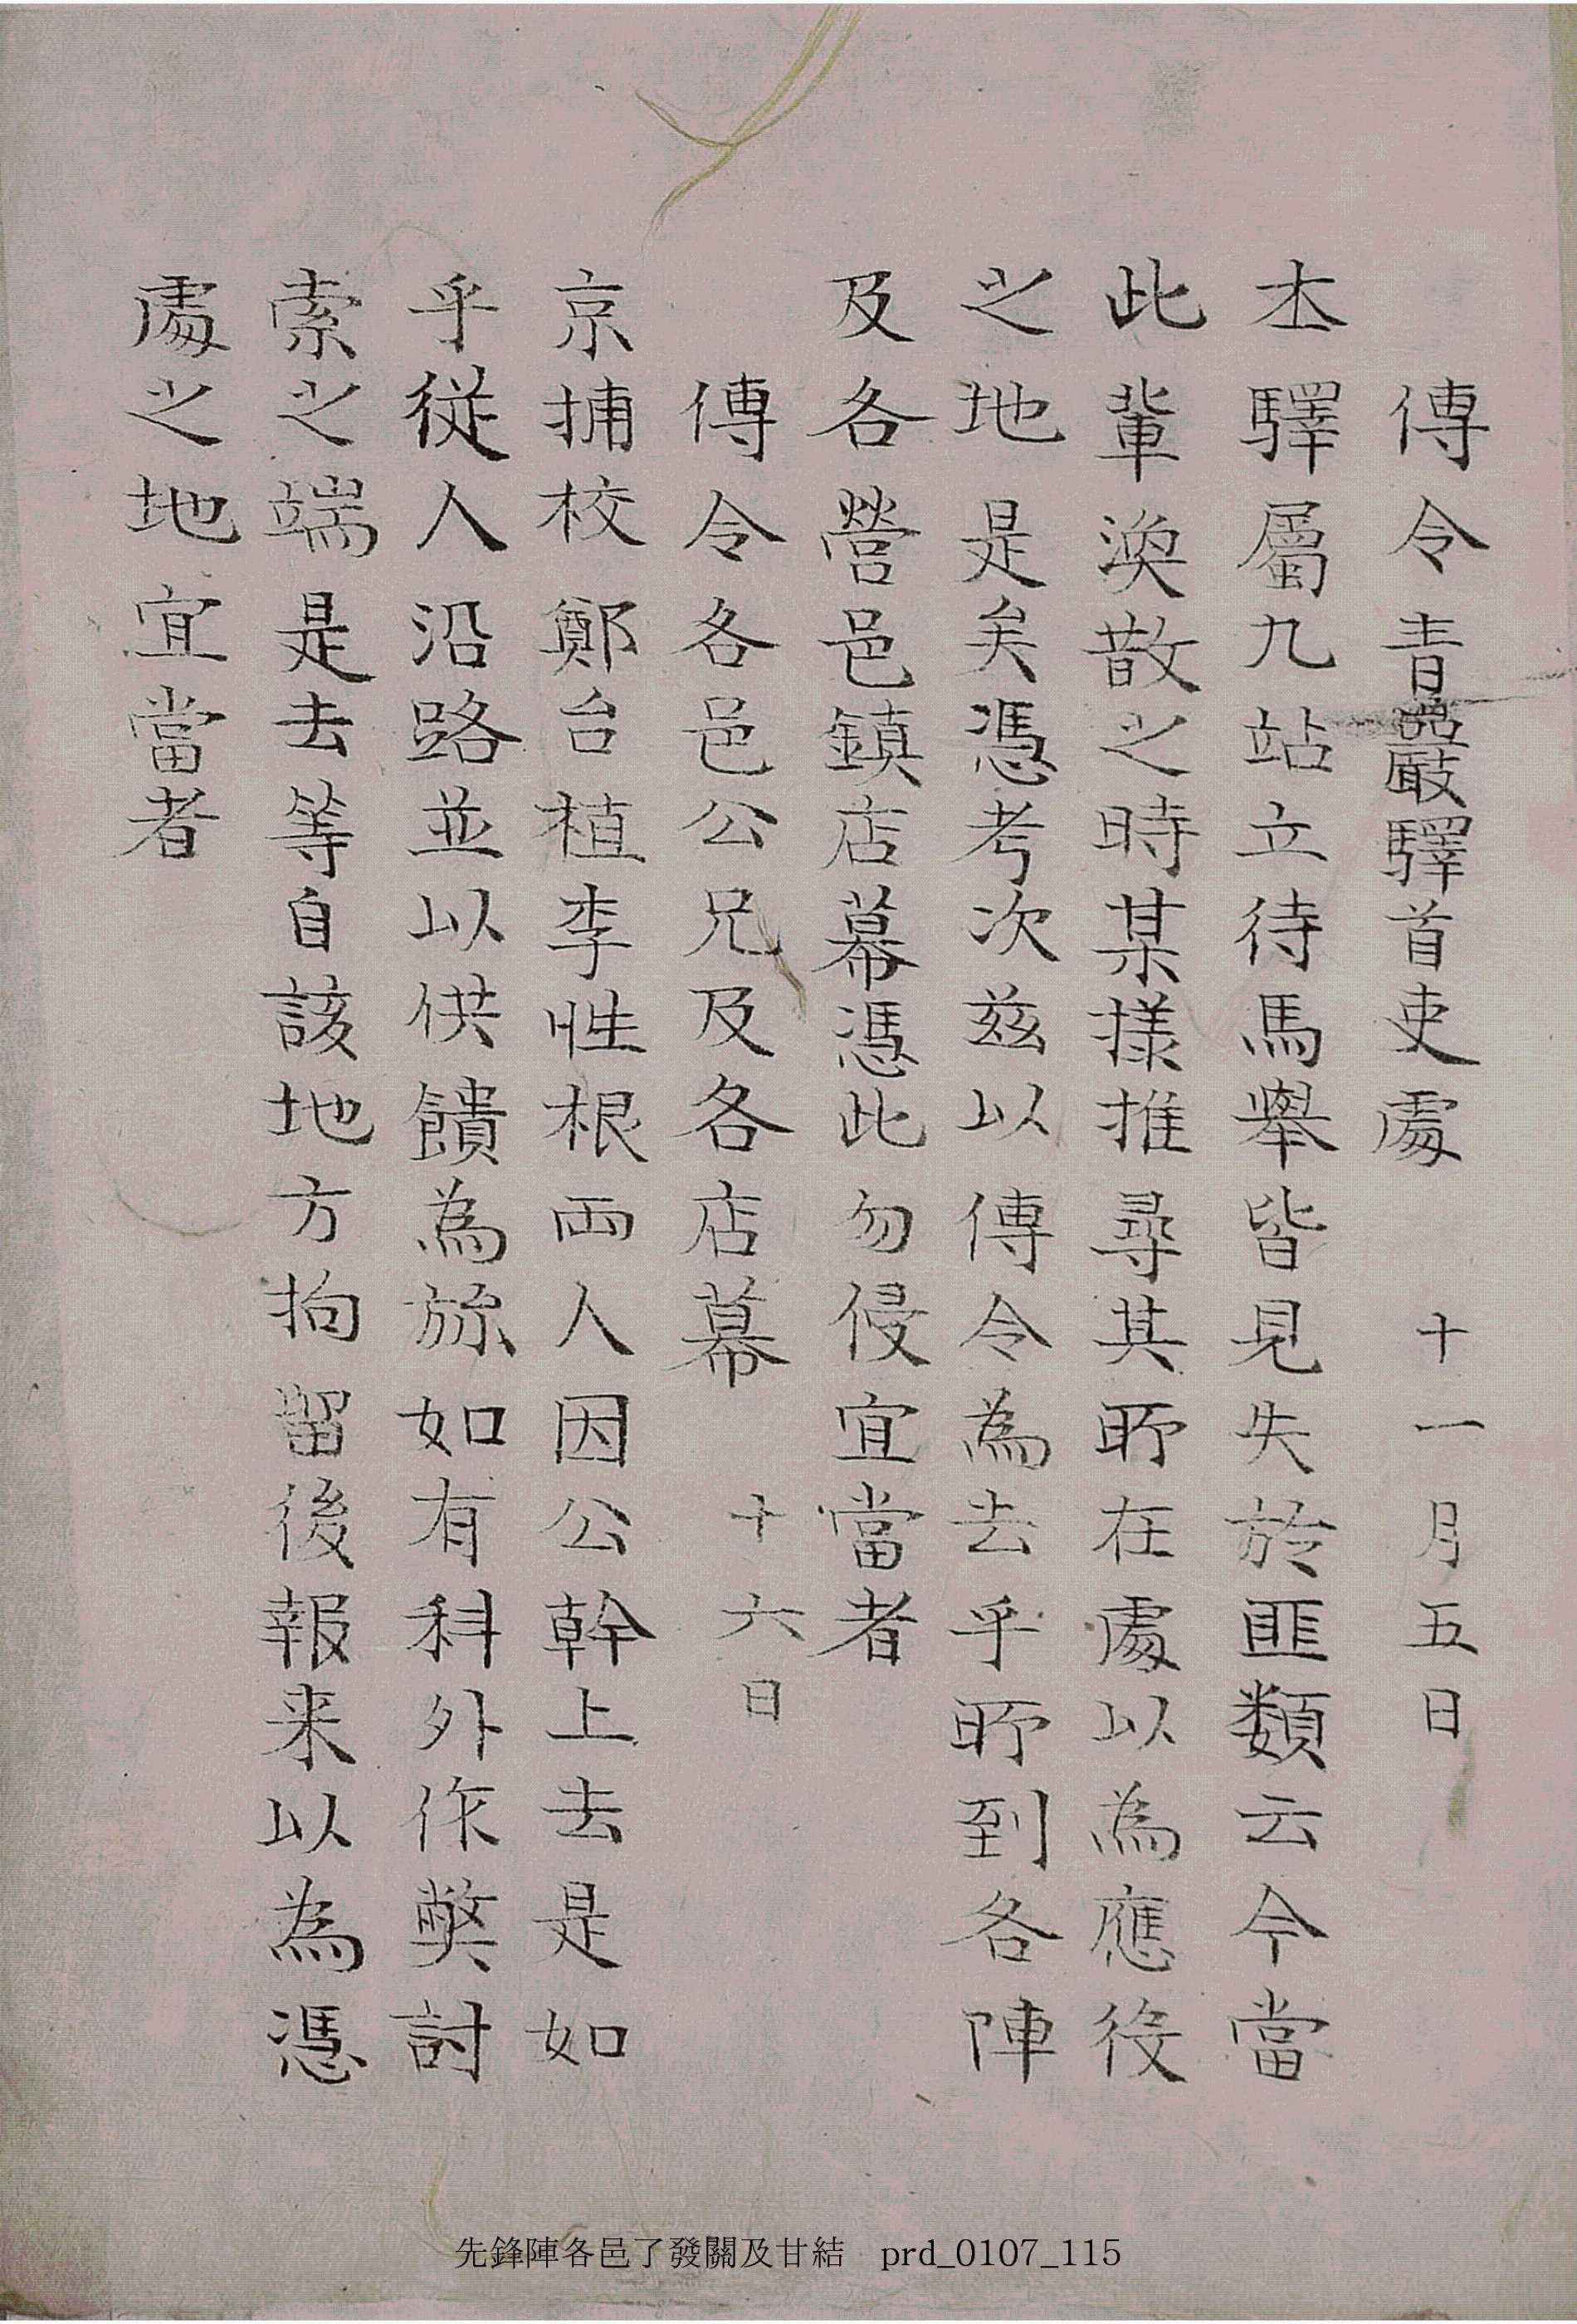 傳令青巖驛首吏處 十一月五日
本驛屬九站立待馬擧皆見失於匪類云今當
此輩渙散之時某樣推尋其所在處以為應役
之地是矣憑考次玆以傳令為去乎所到各陣
及各營邑鎮店幕憑此勿侵宜當者
傳令各邑公兄及各店幕 十六日
京捕校鄭台植李性根両人因公幹上去是如
乎從人沿路並以供饋為旀如有科外作獘討
索之端是去等自該地方拘留後報来以為憑
處之地宜當者
先鋒陣各邑了發關及甘結 prd_0107_115